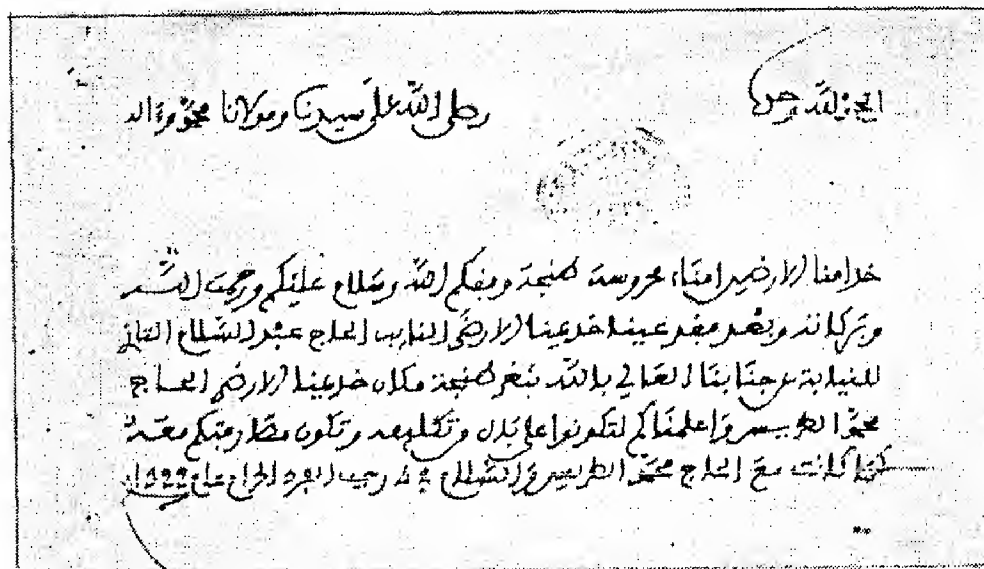 الحمد لله وحده وصلى الله على سيدنا ومولانا محمد وآله
خدامنا الارضين امناء محروسة طنجة وفقكم الله وسلام عليكم ورحمت الله
وبركاته وبعد فقد عينا خديمنا الارضى النايب الحاج عبد السلام التازي
للنيابة عن جنابنا العالي بالله بثغر طنجة مكان خديمنا الارضى الحاج
محمد الطريس واعلمناكم لتكونوا على بال وتكون مفاوضتكم معه
كما كانت مع الحاج محمد الطريس والسلام في رجب الفرد الحرام عام